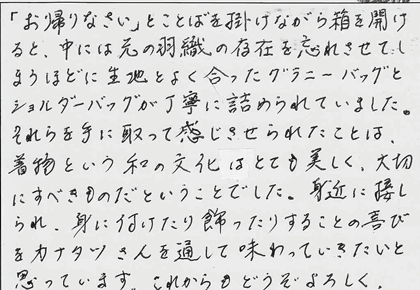 「お帰りなさい」とことばを掛けながら箱を開け
ると、中には元の羽織の存在を忘れさせてし
まうほどに生地とよく合ったグラニーバッグと
ショルダーバッグが丁寧に詰められていました。
それらを手に取って感じさせられたことは、
着物という和の文化はとても美しく、大切
にすべきものだということでした。身近に接し
られ、身に付けたり飾ったりすることの喜び
をカナタツさんを通して味わっていきたいと
思っています。これからもどうぞよろしく、